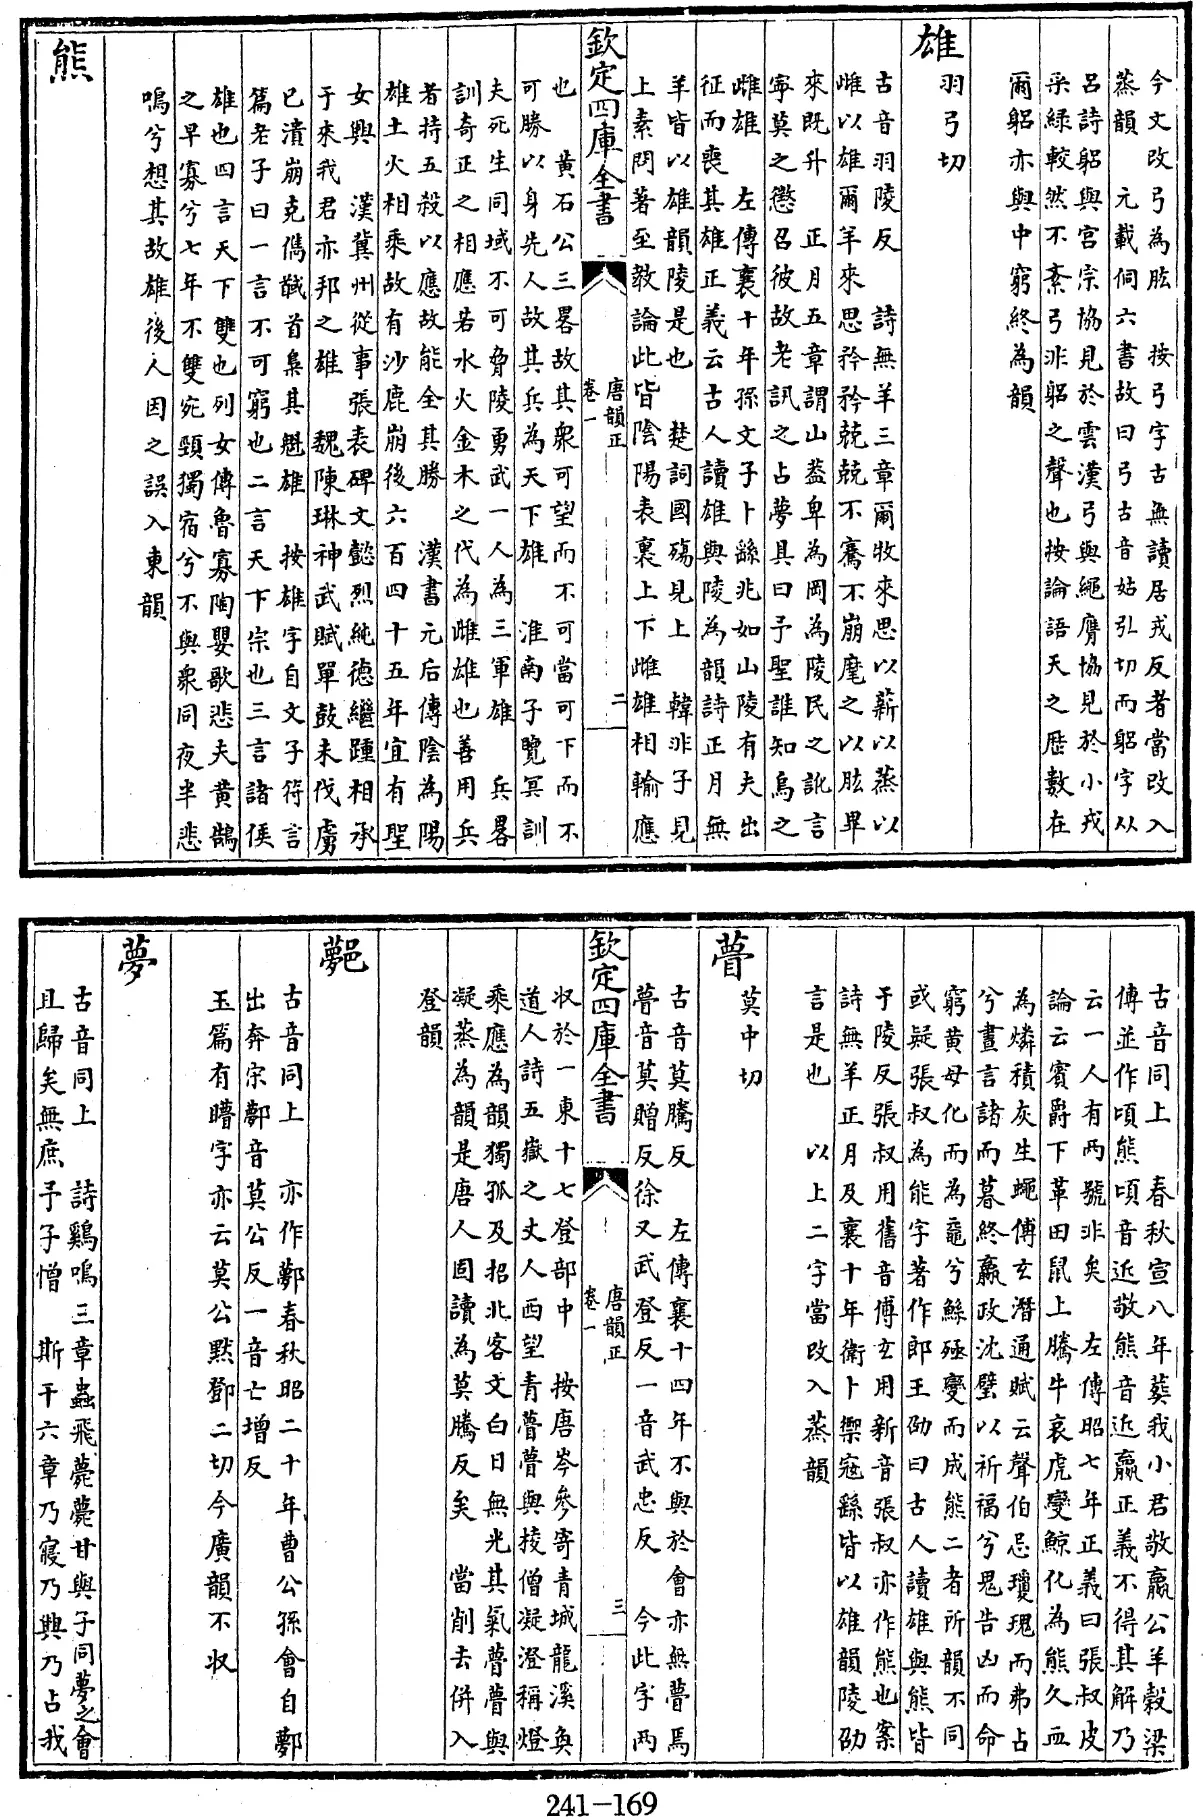 今文改弓為肱　按弓字古無讀居戎反者當改入
蒸韻　元戴侗六書故曰弓古音姑弘切而躬字从
呂詩躬與宮宗協見於雲漢弓與繩膺協見於小戎
采綠較然不紊弓非躬之聲也按論語天之厯數在
爾躬亦與中窮終為韻
雄
羽弓切
古音羽陵反　詩無羊三章爾牧來思以薪以蒸以
雌以雄爾羊來思矜矜兢兢不騫不崩麾之以肱畢
來既升　正月五章謂山葢卑為岡為陵民之訛言
寧莫之懲召彼故老訊之占夢具曰予聖誰知烏之
雌雄　左傳襄十年孫文子卜繇兆如山陵有夫出
征而喪其雄正義云古人讀雄與陵為韻詩正月無
羊皆以雄韻陵是也　楚詞國殤見上　韓非子見
上素問著至教論此皆陰陽表裏上下雌雄相輸應
欽定四庫全書
唐韻正
卷一
二
也　黃石公三畧故其衆可望而不可當可下而不
可勝以身先人故其兵為天下雄　淮南子覽冥訓
夫死生同域不可脅陵勇武一人為三軍雄　兵畧
訓奇正之相應若水火金木之代為雌雄也善用兵
者持五殺以應故能全其勝　漢書元后傳陰為陽
雄土火相乘故有沙鹿崩後六百四十五年宜有聖
女興　漢冀州從事張表碑文懿烈純德繼踵相承
于來我君亦邦之雄　魏陳琳神武賦單鼓未伐虜
已潰崩克儁馘首梟其魁雄　按雄字自文子符言
篇老子曰一言不可窮也二言天下宗也三言諸侯
雄也四言天下雙也列女傳魯寡陶嬰歌悲夫黃鵠
之早寡兮七年不雙宛頸獨宿兮不與衆同夜半悲
鳴兮想其故雄後人因之誤入東韻
熊
古音同上　春秋宣八年葬我小君敬嬴公羊穀梁
傳並作頃熊頃音近敬熊音近嬴正義不得其解乃
云一人有兩號非矣　左傳昭七年正義曰張叔皮
論云賓爵下革田鼠上騰牛哀虎變鯀化為熊久血
為燐積灰生蠅傅玄潛通賦云聲伯忌瓊瑰而弗占
兮晝言諸而暮終嬴政沈璧以祈福兮鬼告凶而命
窮黄母化而為黿兮鯀殛變而成熊二者所韻不同
或疑張叔為能字著作郎王劭曰古人讀雄與熊皆
于陵反張叔用舊音傅玄用新音張叔亦作熊也案
詩無羊正月及襄十年衛卜禦寇繇皆以雄韻陵劭
言是也　以上二字當改入蒸韻
瞢
莫中切
古音莫騰反　左傳襄十四年不與於會亦無瞢焉
瞢音莫贈反徐又武登反一音武忠反　今此字兩
欽定四庫全書
唐韻正
卷一
三
收於一東十七登部中　按唐岑參寄青城龍溪奐
道人詩五嶽之丈人西望青瞢瞢與㥄僧凝澄稱燈
乘應為韻獨孤及招北客文白日無光其氣瞢瞢與
凝蒸為韻是唐人固讀為莫騰反矣　當削去併入
登韻
鄸
古音同上　亦作鄸春秋昭二十年曹公孫會自鄸
出奔宋鄸音莫公反一音亡增反
玉篇有矒字亦云莫公黙鄧二切今廣韻不收
夢
古音同上　詩鷄鳴三章蟲飛薨薨甘與子同夢之會
且歸矣無庶予子憎　斯干六章乃寢乃興乃占我
241-169